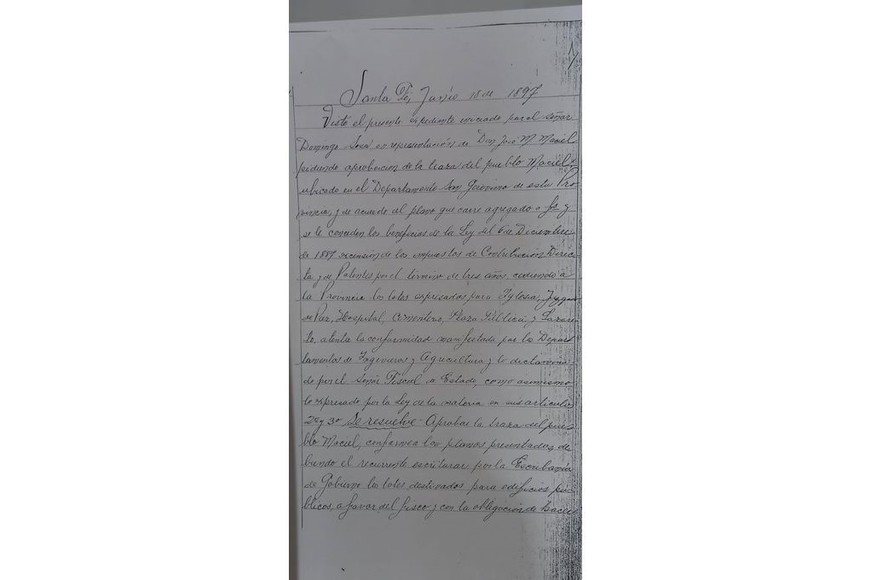 Santa Fé, Junio 18 de 1897
Visto el presente espediente iniciado por el señor
Domingo en representación de Don José M Maciel
pidiendo aprobacion de la traza del pueblo Maciel,
ubicado en el Departamento San Gerónimo de esta Pro
vincia, y de acuerdo al plano que corre agregado a fs y
se le conceden los beneficios de la Ley del 6 de Diciembre
de 1887 excensión de los impuestos de Contribución Direc
ta, y de Patentes por el término de tres años, cediendo a
la Provincia los lotes espresados para Iglesia, Juzga
de Paz, Hospital, Plaza Pública, y Lazare
to, atenta la conformidad manifestada por los Depart
amentos de Ingenieros y Agricultura y lo dictamina
do por el Señor Fiscal de Estado, como asimismo
lo espresado por la Ley de la materia en sus artículos
2o y 3o Se resuelve - Aprobar la traza del pue
blo Maciel, conforme a los planos presentados, de
biendo el recurrente escriturar por la Escribanía
de Gobierno los lotes destinados para edificios pú
blicos, a favor del fisco y con la obligación de hacer